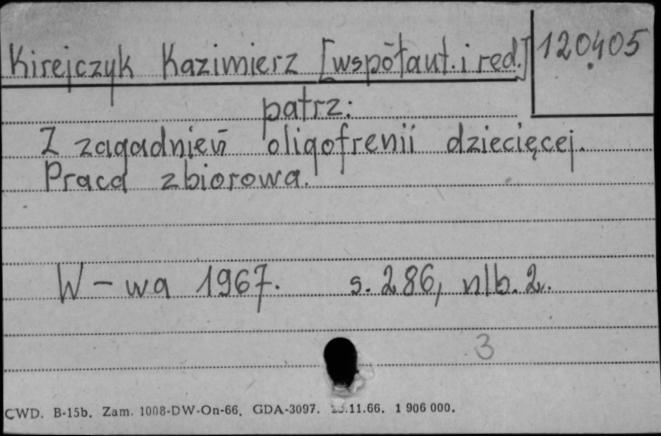 Kirejczyk Kazimierz [współaut. i red.]
120405
patrz:
Z zagadnień oligofrenii dziecięcej.
Praca zbiorowa.
W-wa 1967. s. 286, nlb. 2.
3
CWD. B-15b. Zam. 1008-DW-On-66. GDA-3097. .11.66. 1 906 000.